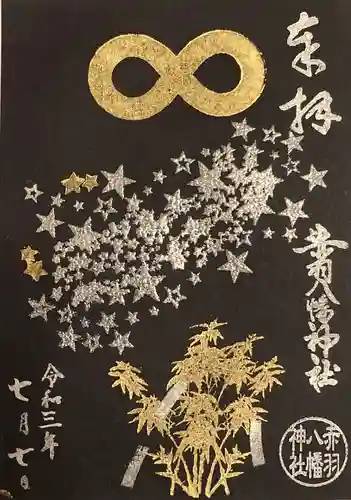 奉拝
赤羽八幡神社
令和三年
七月七日
赤羽
八幡
神社